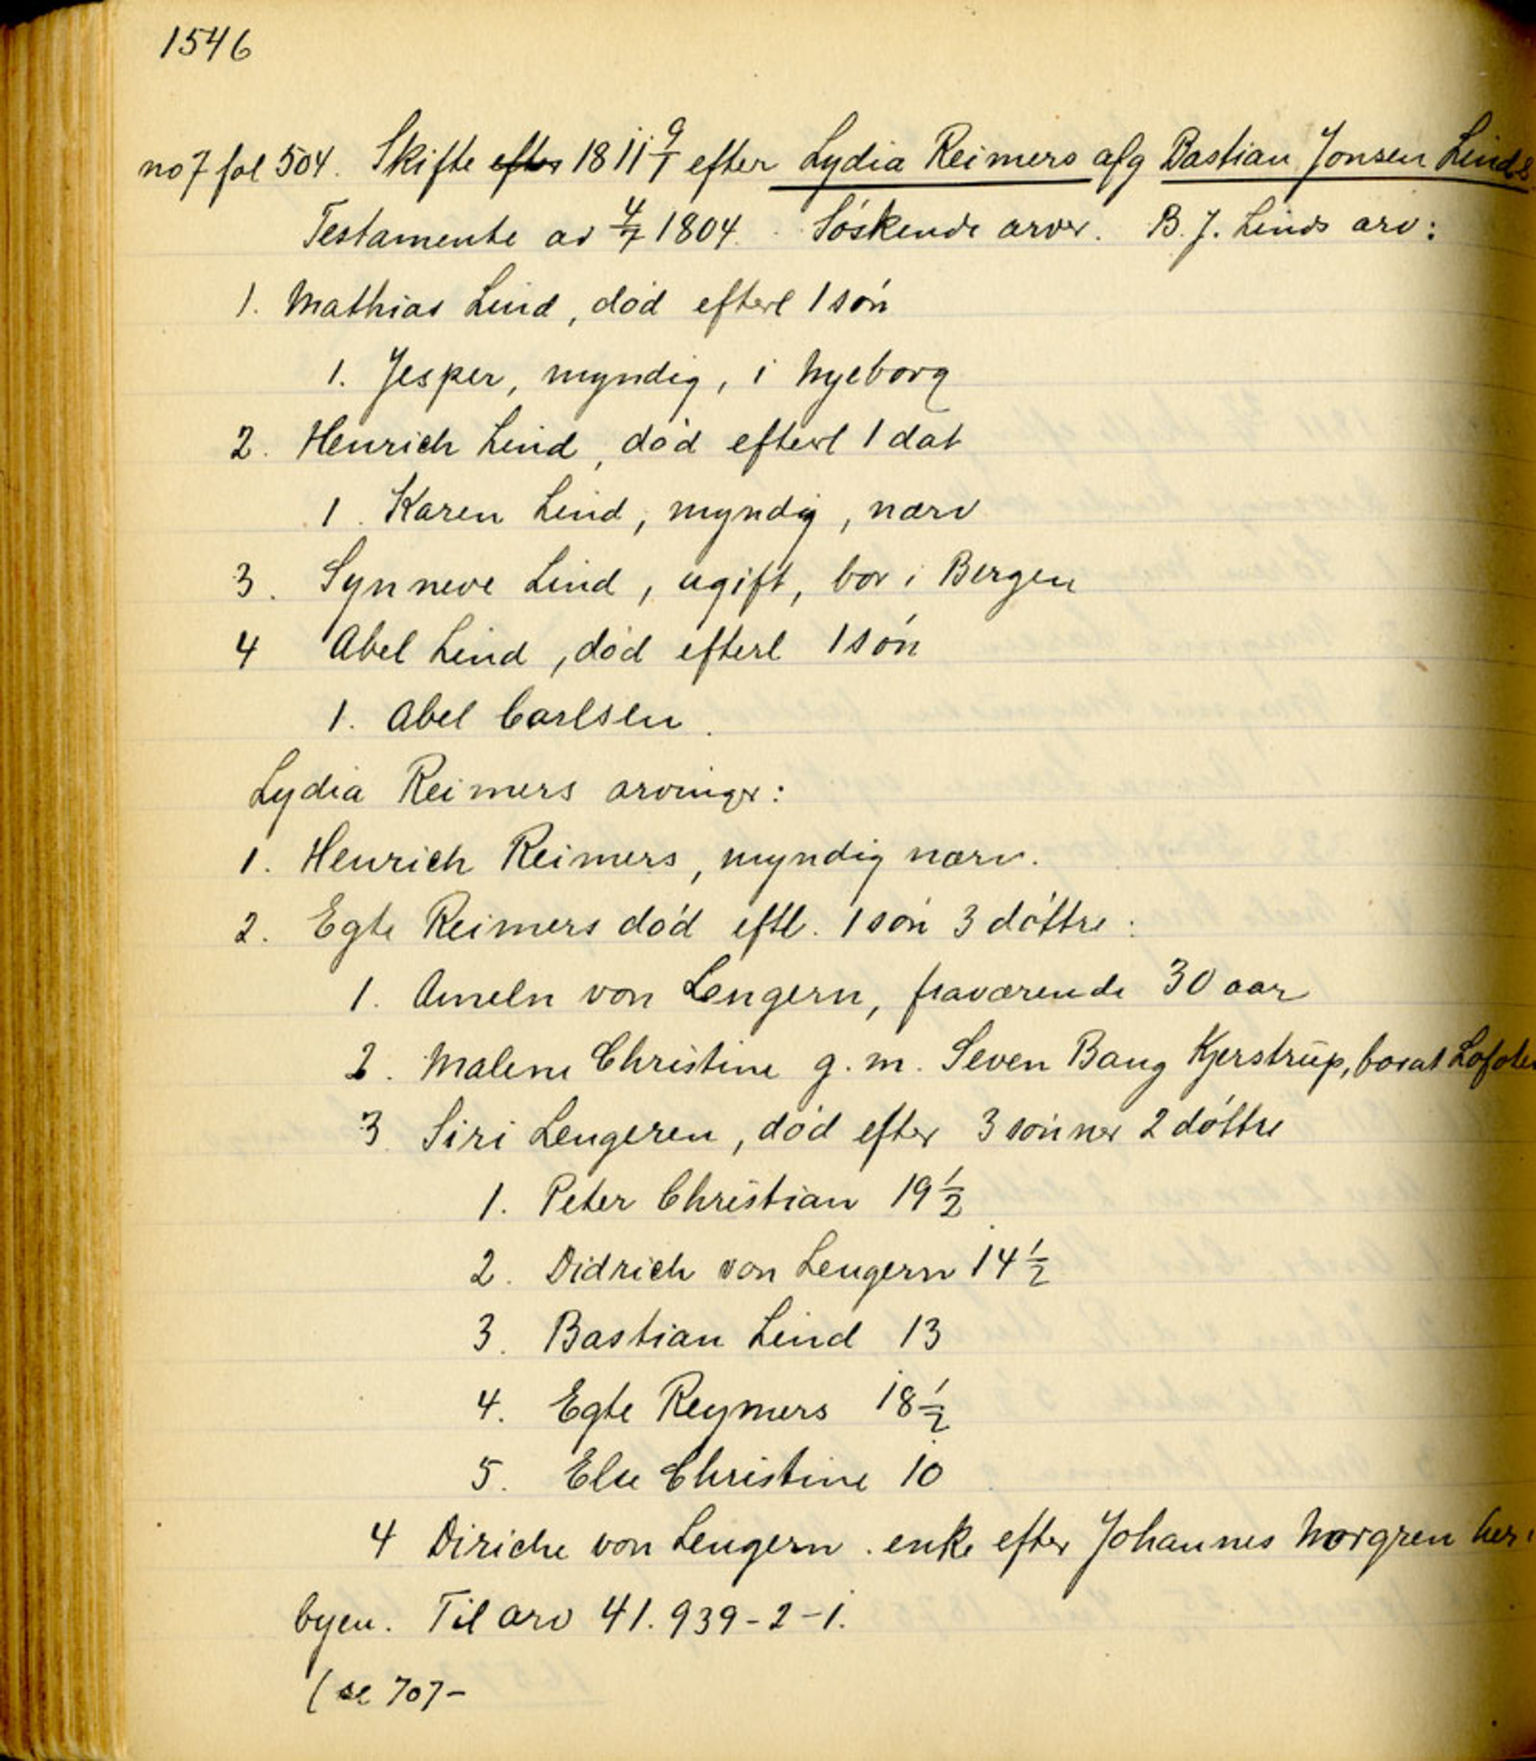 1546
no 7 fol 504. Skifte efter 1811 9/1 efter Lydia Reimers afg Bastian Jonsen Linds
Testamente av 4/7 1804. Søskende arver. B. J. Linds arv:
1. Mathias Lind, død efterl 1 søn
1. Jesper, myndig, i Nyeborg
2. Henrich Lind, død efterl 1 dat
1. Karen Lind, myndig, nærv
3. Synneve Lind, ugift, bor i Bergen
4 Abel Lind, død efterl 1 søn
1. Abel Carlsen.
Lydia Reimers arvinger:
1. Henrich Reimers, myndig nærv.
2. Egte Reimers død eftl. 1 søn 3 døttre:
1. Ameln von Lengern, fraværende 30 aar
2. Malene Christine g. m. Seven Bang Kjerstrup, borat Lofoten
3 Siri Lengeren, død efter 3 sønner 2 døttre
1. Peter Christian 19 1/2
2. Didrich von Lengern 14 1/2
3. Bastian Lind 13
4. Egte Reymers 18 1/2
5. Else Christine 10
4 Diriche von Lengern. enke efter Johannes Norgren her i
byen. Til arv 41.939-2-1.
(se 707-